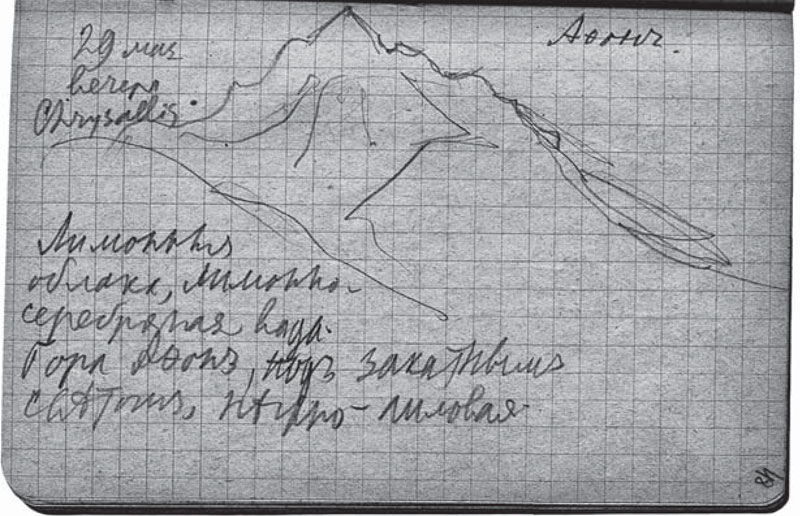 29 мая
вечеръ
Chrysallis.
Аѳонъ.
Лимонныя
облака, лимонно-
серебряная вода.
Гора Аѳонъ, подъ закатнымъ
свѣтомъ, нѣжно-лиловая.